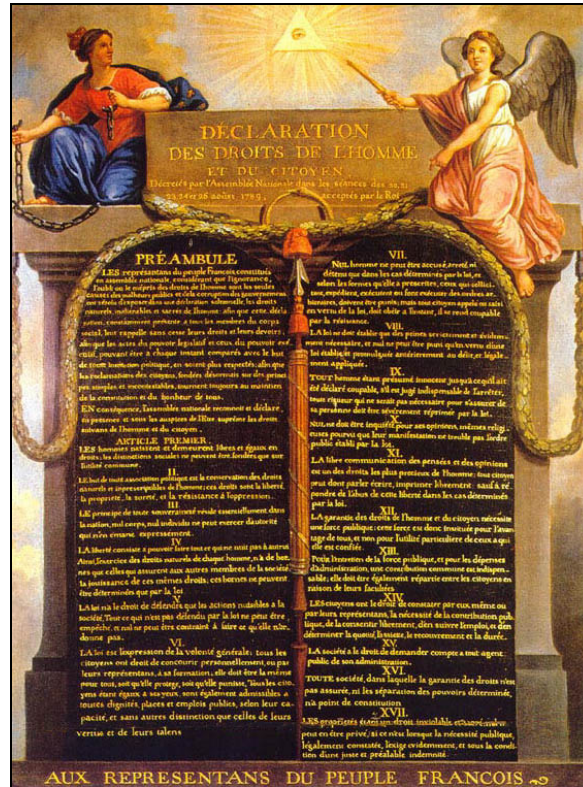 DÉCLARATION
DES DROITS DE L'HOMME
ET DU CITOYEN,
Décretés par l'Assemblée Nationale dans les séances des 20, 21
23, 24 et 26 août 1789, acceptés par le Roi
PRÉAMBULE
LES représentans du peuple François, constitués
en assemblée nationale, considérant que l'ignorance,
l'oubli ou le mépris des droits de l'homme sont les seules
causes des malheurs publics et de la corruption des gouvernemens
ont résolu d'exposer dans une déclaration solemnelle, les droits
naturels, inaliénables et sacrés de l'homme; afin que cette décla-
ration, constamment présente à tous les membres du corps
social, leur rappelle sans cesse leurs droits et leurs devoirs;
afin que les actes du pouvoir législatif et ceux du pouvoir exé-
cutif, pouvant être à chaque instant comparés avec le but
de toute institution politique, en soient plus respectés; afin que
les réclamations des citoyens, fondées désormais sur des princi-
pes simples et incontestables, tournent toujours au maintien
de la constitution et du bonheur de tous.
EN conséquence, l'assemblée nationale reconnoit et déclare,
en présence et sous les auspices de l'Etre suprême les droits
suivans de l'homme et du citoyen.
ARTICLE PREMIER.
LES hommes naissent et demeurent libres et égaux en
droits; les distinctions sociales ne peuvent être fondées que sur
l'utilité commune.
II.
LE but de toute association politique est la conservation des droits
naturels et inprescriptibles de l'homme; ces droits sont la liberté,
la propriété, la sureté, et la résistance à l'oppression.
III.
LE principe de toute souveraineté réside essentiellement dans
la nation, nul corps, nul individu ne peut exercer d'autorité
qui n'en émane expressément.
IV.
LA liberté consiste à pouvoir faire tout ce qui ne nuit pas à autrui
Ainsi, l'exercice des droits naturels de chaque homme, n'a de bor-
nes que celles qui assurent aux autres membres de la société
la jouissance de ces mêmes droits; ces bornes ne peuvent
être déterminées que par la loi
V.
LA loi n'a le droit de défendre que les actions nuisibles à la
société. Tout ce qui n'est pas défendu par la loi ne peut être
empêché, et nul ne peut être contraint à faire ce qu'elle n'or-
donne pas.
VI.
LA loi est l'expression de la volonté générale; tous les
citoyens ont droit de concourir personnellement, ou par
leurs représentans, à sa formation; elle doit être la même
pour tous, soit qu'elle protege, soit qu'elle punisse. Tous les cito-
yens étant égaux à ses yeux, sont également admissibles à
toutes dignités, places et emplois publics, selon leur ca-
pacité, et sans autres distinction que celles de leurs
vertus et de leurs talens
VII.
NUL homme ne peut être accusé, arreté, ni
détenu que dans les cas déterminés par la loi, et
selon les formes qu'elle a prescrites, ceux qui sollici-
tent, expédient, exécutent ou font exécuter des ordres ar-
bitraires, doivent être punis; mais tout citoyen appelé ou saisi
en vertu de la loi, doit obéir à l'instant, il se rend coupable
par la résistance.
VIII.
LA loi ne doit établir que des peines strictement et évidem-
ment nécessaire, et nul ne peut être puni qu'en vertu d'une
loi établie, et promulguée antérieurement au délit, et légale-
ment appliquée.
IX.
TOUT homme étant présumé innocent jusqu'à ce qu'il ait
été déclaré coupable, s'il est jugé indispensable de l'arrêter,
toute rigueur qui ne serait pas nécessaire pour s'assurer de
sa personne doit être sévèrement réprimée par la loi.
X.
NUL ne doit être inquiété pour ses opinions, mêmes religi-
euses pourvu que leur manifestation ne trouble pas l'ordre
public établi par la loi.
XI.
LA libre communication des pensées et des opinions
est un des droits les plus précieux de l'homme; tout citoyen
peut donc parler écrire, imprimer librement: sauf à ré-
pondre de l'abus de cette liberté dans les cas déterminés
par la loi.
XII.
LA garantie des droits de l'homme et du citoyen nécessite
une force publique; cette force est donc instituée pour l'avan-
tage de tous, et non pour l'utilité particulière de ceux a qui
elle est confiée.
XIII.
POUR l'entretien de la force publique, et pour les dépenses
d'administration, une contribution commune est indispen-
sable; elle doit être également répartie entre les citoyens en
raison de leurs facultées.
XIV.
LES citoyens ont le droit de constater par eux même ou
par leurs représentans, la nécessité de la contribution pub-
lique, de la consentir librement, d'en suivre l'emploi, et d'en
déterminer la quotité, l'assiette, le recouvrement et la durée.
XV.
LA société a le droit de demander compte a tout agent
public de son administration.
XVI.
TOUTE société, dans laquelle la garantie des droits n'est
pas assurée, ni les séparation des pouvoirs déterminée,
n'a point de constitution
XVII.
LES propriétés étant un droit inviolable et sacré, nul ne
peut en être privé, si ce n'est lorsque la nécessité publique,
légalement constatée, l'exige evidemment, et sous la condi-
tion d'une juste et préalable indemnité.
AUX REPRESENTANS DU PEUPLE FRANCOIS